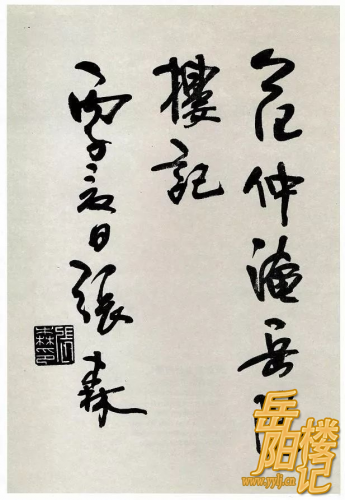 范仲淹岳
樓記
丙子夏日張森
張森印
岳阳
楼记
www.yylj.cn